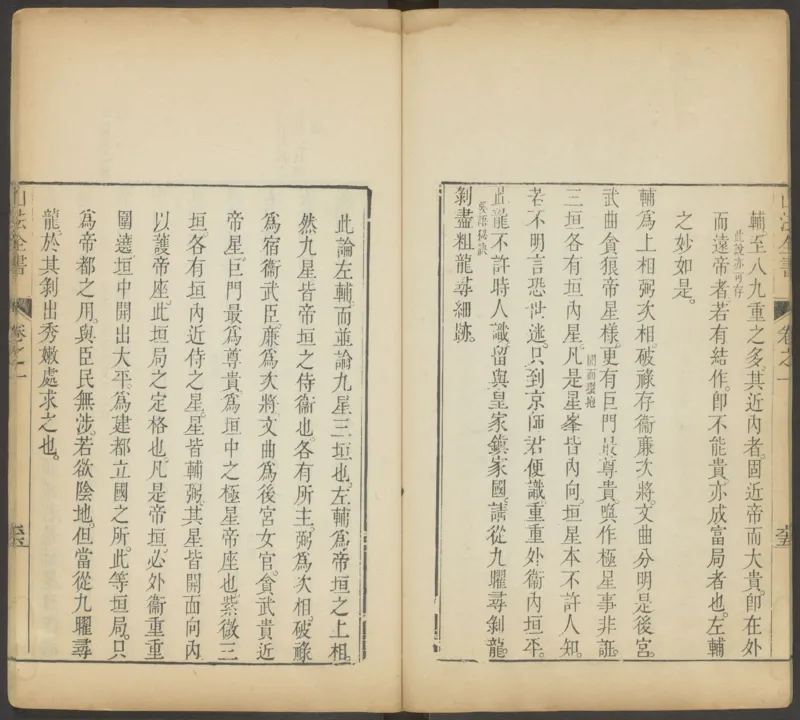 輔至八九重之多。其近內者。固近帝而大貴。卽在外
此說亦可存
而遠帝者。若有結作。卽不能貴。亦成富局者也。左輔
之妙如是。
輔爲上相弼次相。破祿存衞廉次將。文曲分明是後宮。
武曲貪狼帝星樣。更有巨門最尊貴。喚作極星事非誑。
三垣各有垣內星。凡是星峯皆內向。垣星本不許人知。
開面環抱
若不明言恐世迷。只到京師君便識。重重外衞內垣平。
此龍不許時人識。留與皇家鎭家國。請從九曜尋剝龍。
吳語秘訣
剝盡粗龍尋細跡。
山法全書
卷之一
此論左輔。而並論九星三垣也。左輔爲帝垣之上相。
然九星皆帝垣之侍衞也。各有所主。弼爲次相。破祿
爲宿衞武臣。廉爲次將。文曲爲後宮女官。貪武貴近
帝星。巨門最爲尊貴。爲垣中之極星帝座也。紫微三
垣。各有垣內近侍之星。星皆輔弼。其星皆開面向內
以護帝座。此垣局之定格也。凡是帝垣。必外衞重重
圍遶。垣中開出大平。爲建都立國之所。此等垣局。只
爲帝都之用。與臣民無涉。若欲陰地。但當從九曜尋
龍。於其剝出秀嫩處求之也。
山法全書
卷之一